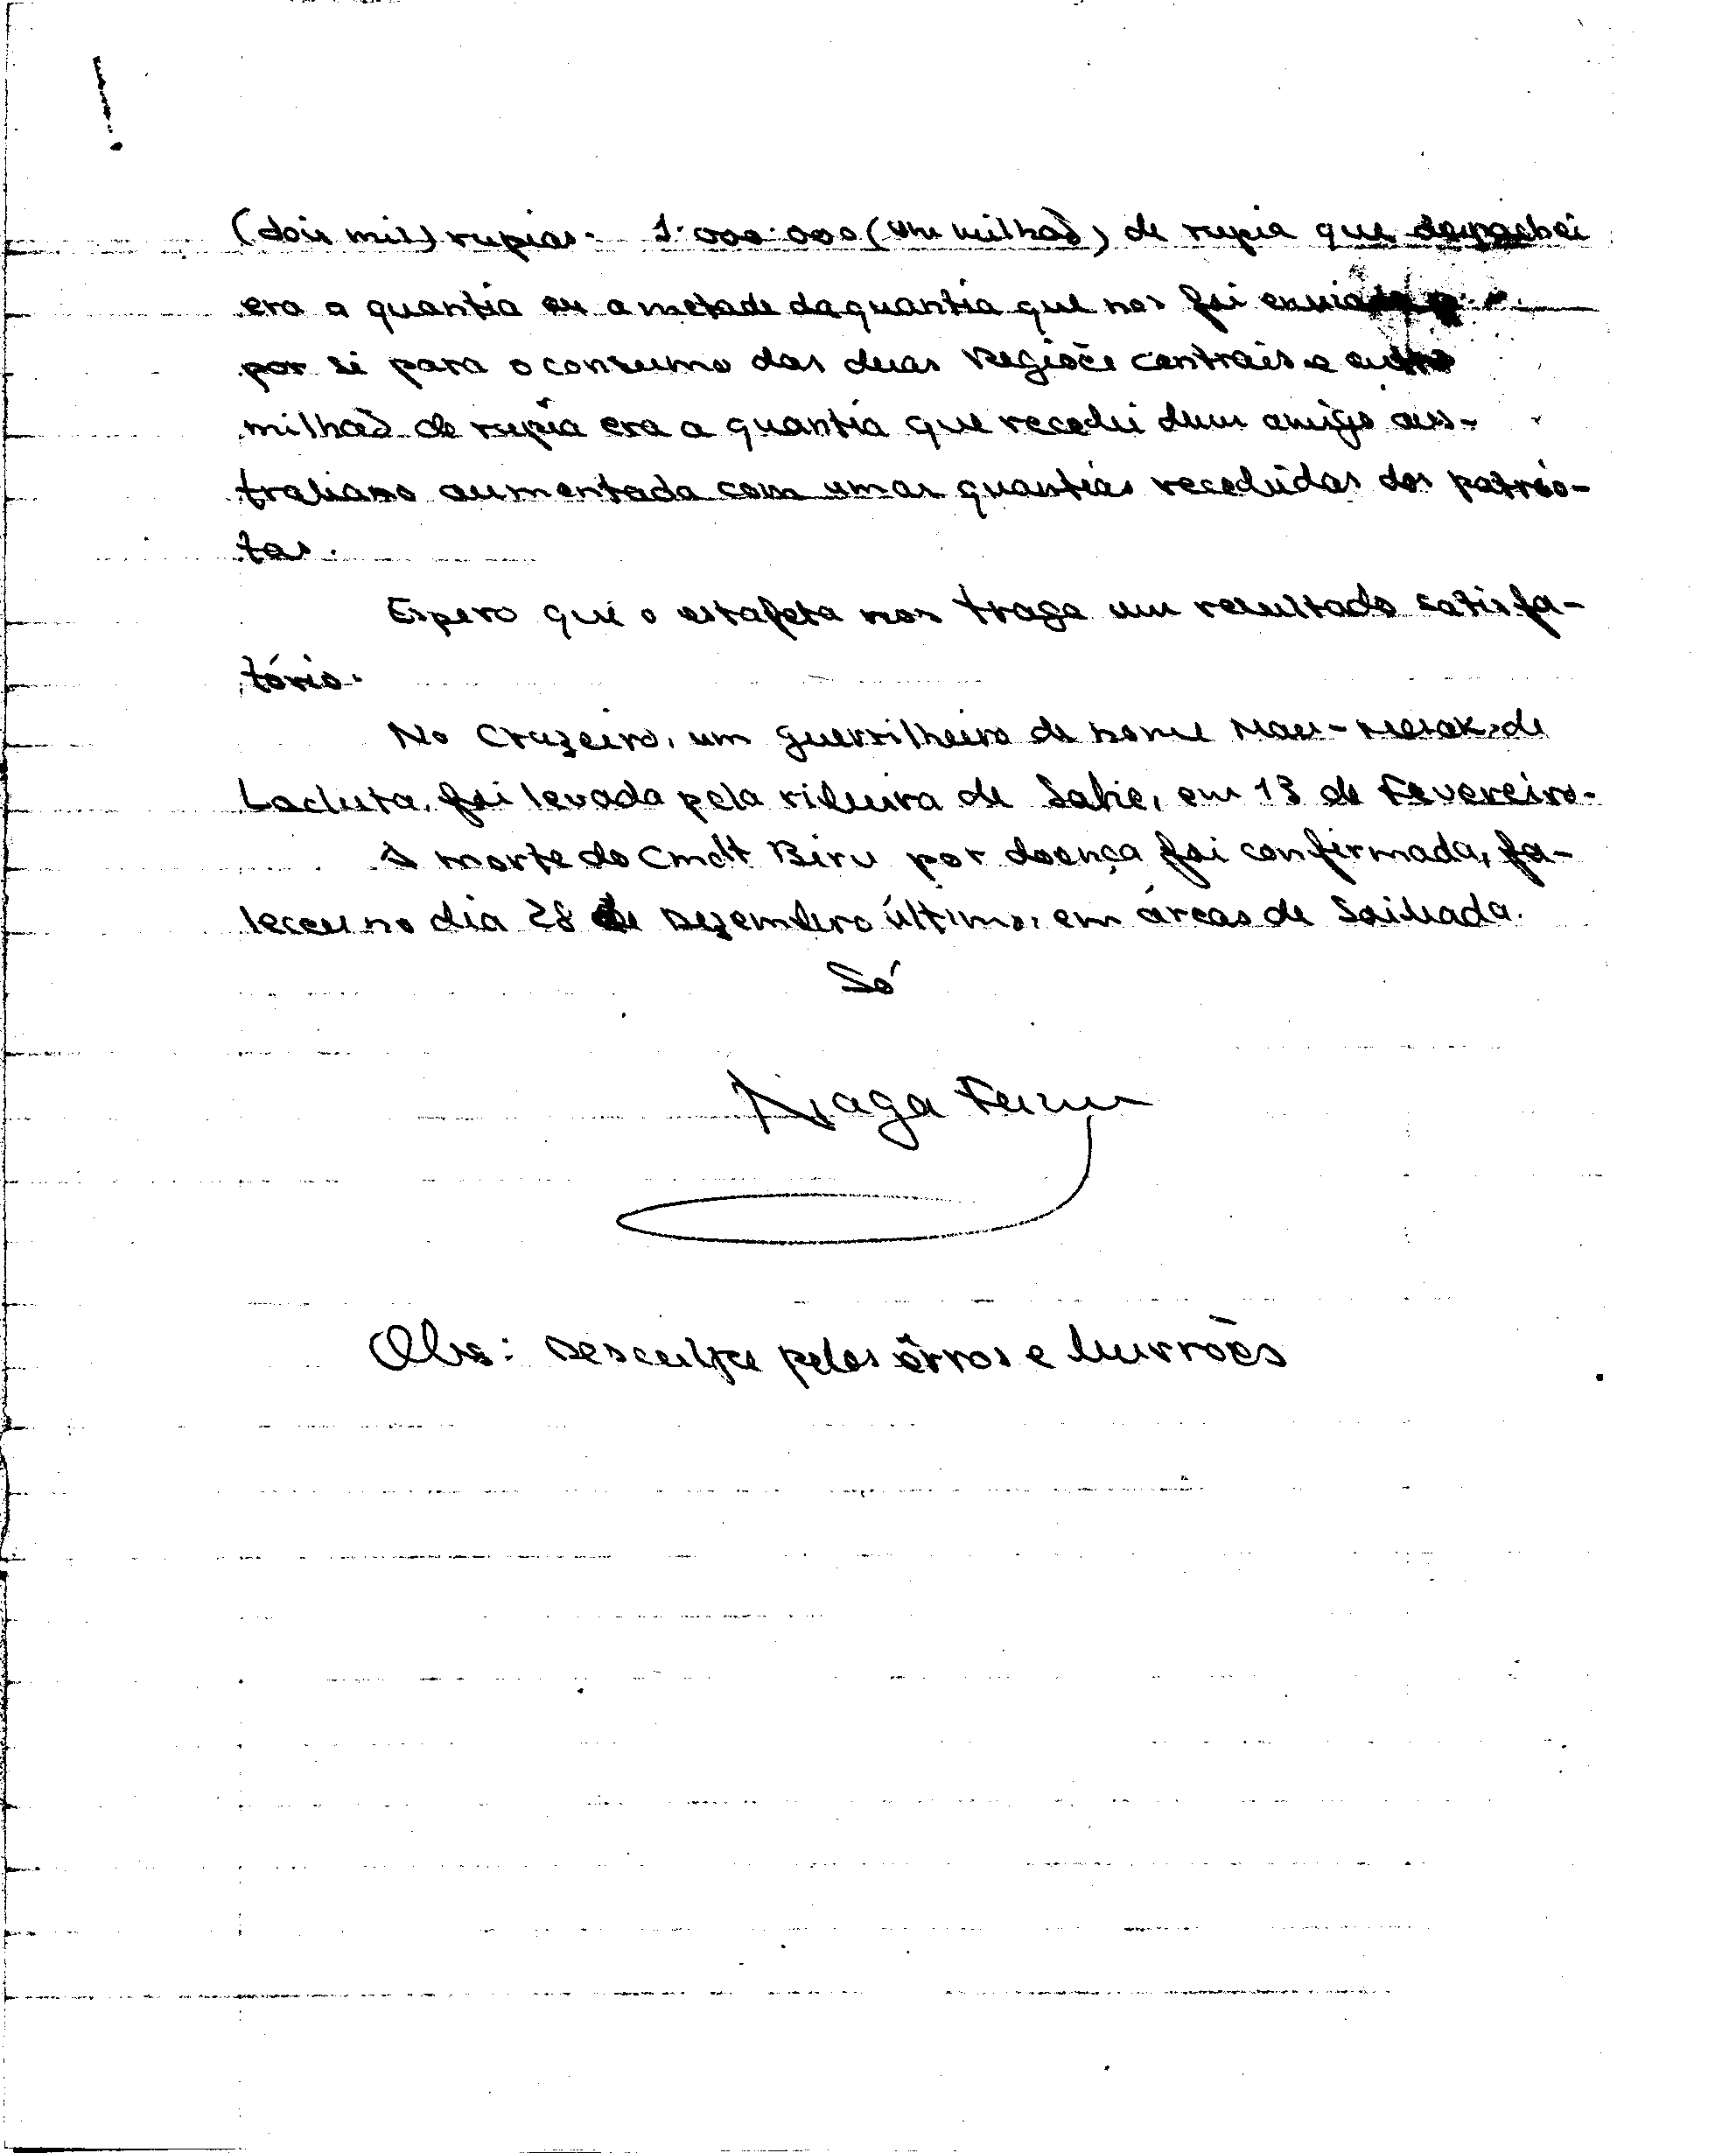 (dois mil) rupias. 1.000.000 (um milhaõ) de rupia que despachei
era a quantia ou a metade da quantia que nos foi enviada
por si para o consumo das duas Regioẽs centrais e outro
milhaõ de rupia era a quantia que recebi dum amigo aus-
traliano aumentada com umas quantias recebidas dos patrio-
tas.
Espero que o estafeta nos traga um resultado satisfa-
tório.
No Cruzeiro, um guerrilheiro de nome Mau-Merak, de
Lacluta, foi levado pela ribeira de Sahe, em 13 de Fevereiro.
A morte do Cmdt Biru por doença foi confirmada, fa-
leceu no dia 28 de Dezembro último, em áreas de Saibada.
Só
Obs: Desculpe pelos êrros e burroẽs